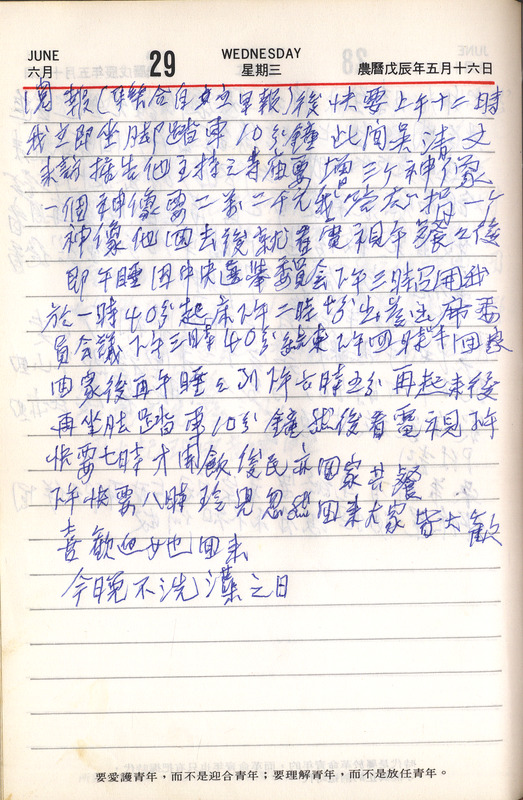 JUNE 29 WEDNESDAY
六月 星期三 農曆戊辰年五月十六日
覓報(聯合自立早報)後快要上午十二時
我立即坐脚踏車10分鐘 此間吳清文
來訪 报告他主持之寺庙要增三个神像
一個神像要二萬二千元 我答应捐一个
神像他回去後就看電視午餐之後
即午睡 因中央選舉委員会下午三時召開我
於一時40分起床下午二時 出差出席委
員会議 下午三時40分結束下午四時半回家
回家後再午睡 到下午六時五分再起來後
再坐脚踏車10分鐘然後看電視 下午
快要七時才開飯俊民亦回家共餐
下午快要八時玲兒忽然回來大家皆大歡
喜歡迎她回来
今晚不洗澡之日
要愛護青年,而不是迎合青年;要理解青年,而不是放任青年。